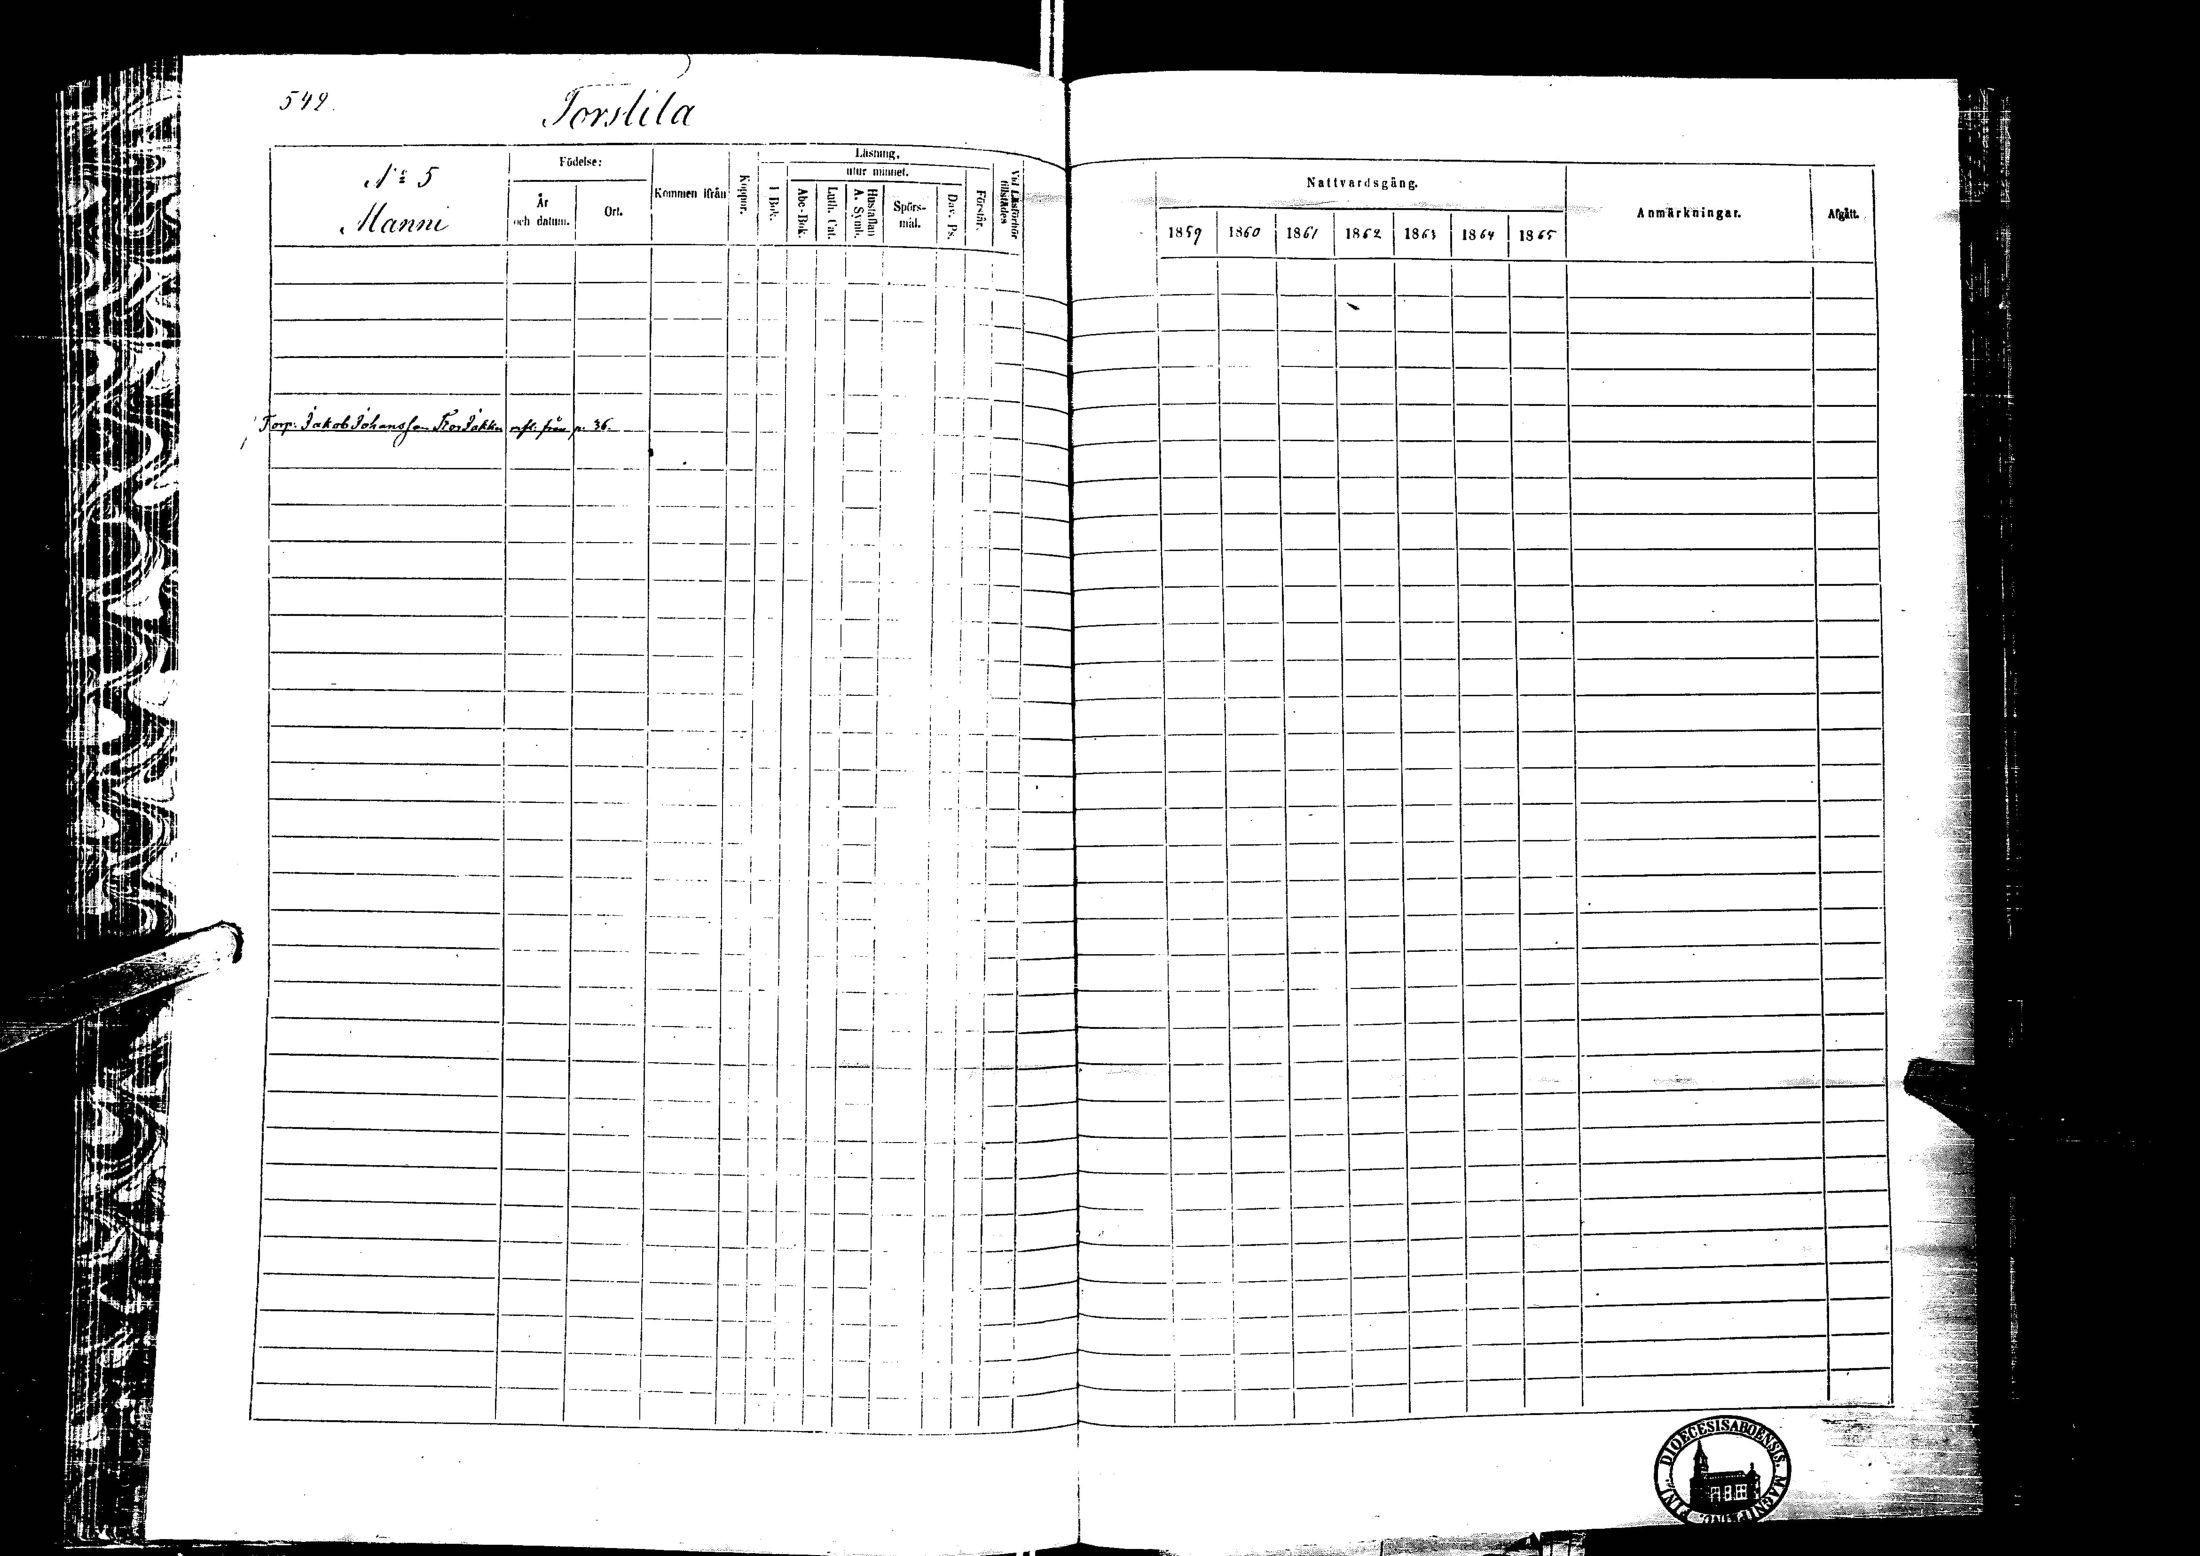 542.
Torstila
N:o 5
Manni
Födelse:
År
och datum.
Ort.
Kommen ifrån
Koppor.
Läsning,
utur minnet.
I Bok.
Abc-Bok.
Luth. Cat.
Hustaflan
A. Symb.
Spörs-
mål.
Dav. Ps.
Förstår.
Vid Läsförhör
tillstädes
Torp. Jakob Johansson från p. 36.
Nattvardsgång.
1859 1860 1861 1862 1863 1864 1865
Anmärkningar.
Afgått.
DIOECESIS ABOENSIS. MAGNI PRINC. FINL.